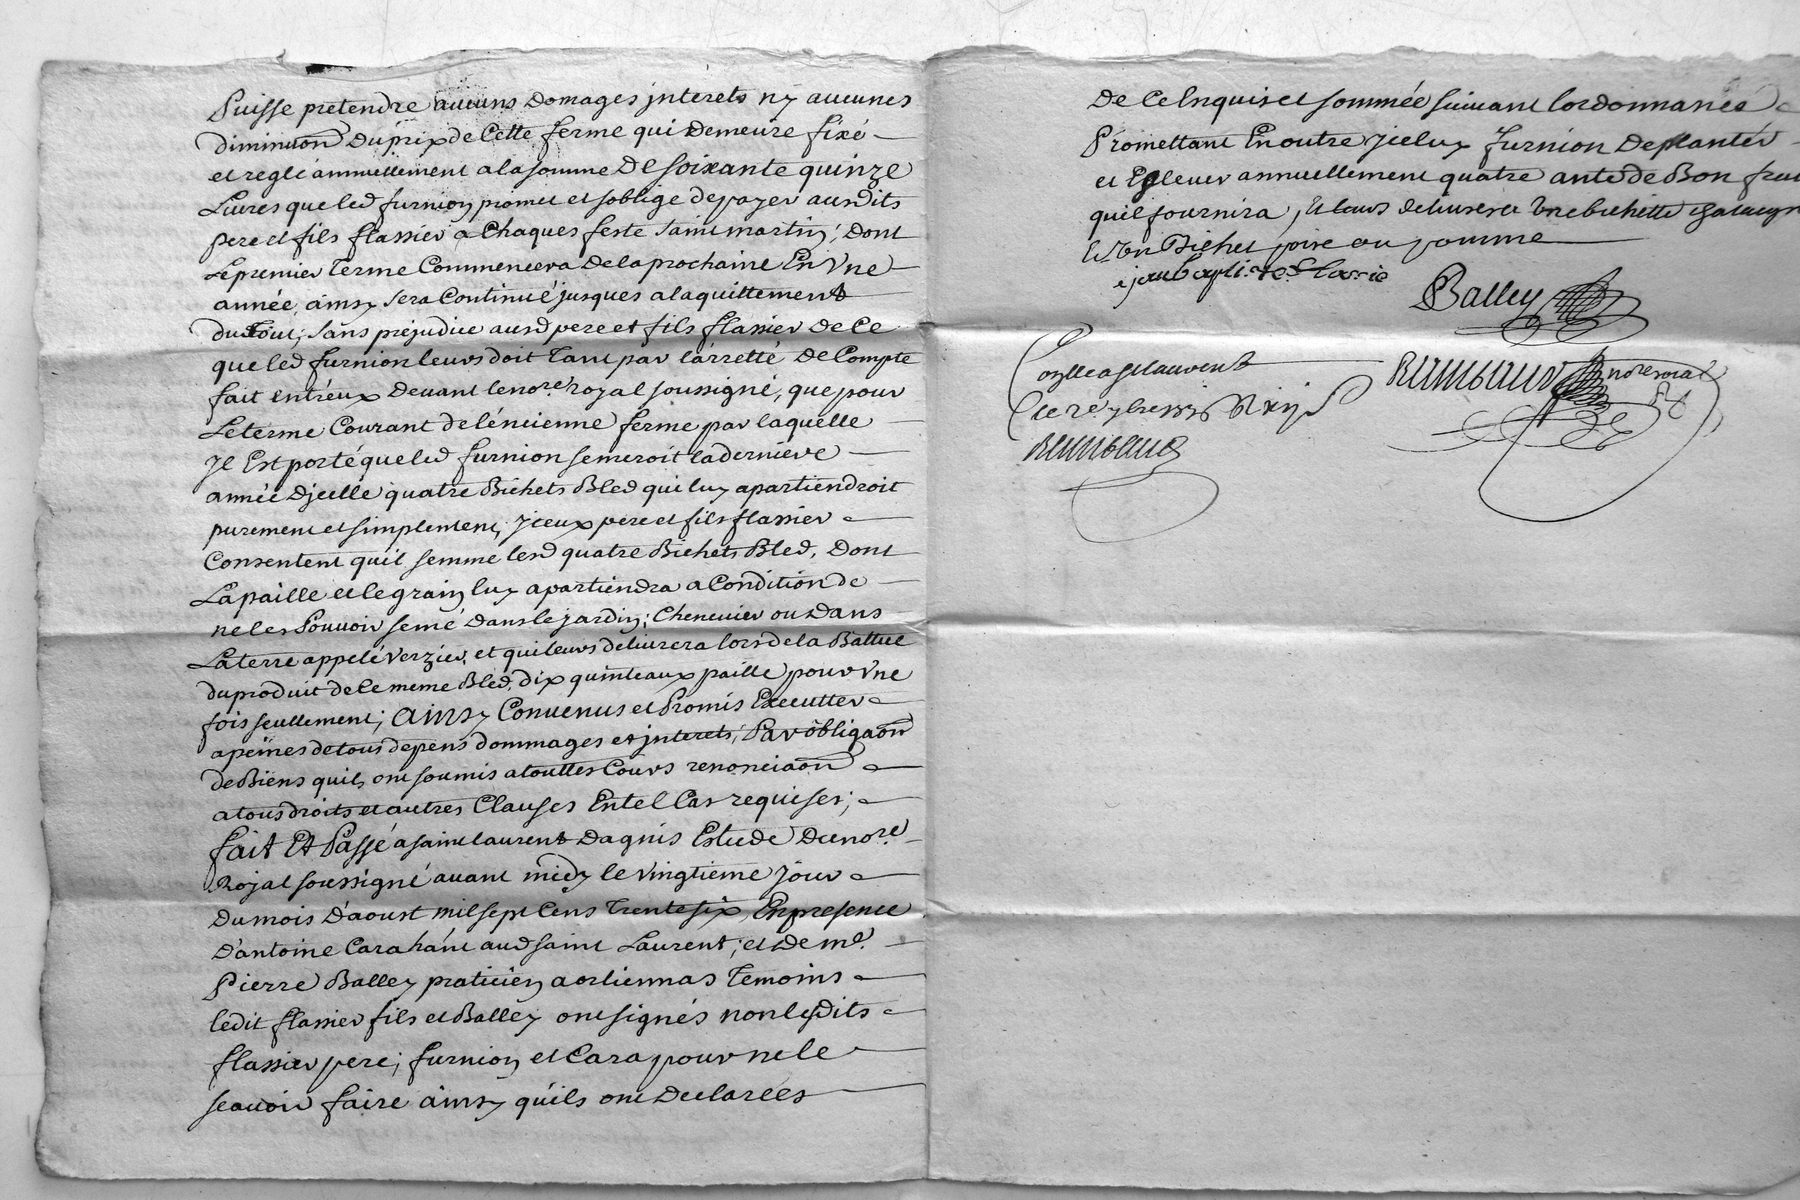 Puisse pretendre aucuns Domages jnterets ny aucunes
diminuõn Du prix de Cette ferme qui Demeure fixé
et reglé annuellement a la somme De soixante quinze
Livres que led furnion promet et soblige de payer ausdits
pere et fils flassier a Chaques feste saint martin, Dont
Le premier Terme Commencera De la prochaine En Une
année, ainsy sera Continué jusques a laquittement
du Tout, sans prejudice ausd pere et fils flassier De Ce
que led furnion leurs doit Tant par larretté De Compte
fait entréux Devant le nore. royal soussigné, que pour
Le terme Courant de léncienne ferme par laquelle
Jl Est porté que led furnion semeroit la derniere
année Djcelle quatre Bichets Bled qui luy apartiendroit
purement et simplement, jceux pere et fils flassier
Consentent quil semme lesd quatre Bichets Bled, Dont
La paille et le grain luy apartiendra a Condition de
ne les Pouvoir semé Dans le jardin, Chenevier ou Dans
La terre appelé Verzier, et qui leurs delivrera lors de la Battue
du produit de le meme Bled, dix quinteaux paille pour Vne
fois seullement; ainsy Convenus et Promis Executter
a peines de tous depens dommages et jnterets, Par obligaõn
de Biens quils ont soumis a touttes Cours renonciaõn
a tous droits et autres Clauses En tel Cas requises;
fait Et Passé a saint laurent Dagnis Estude Du nore.
Royal soussigné avant midy le vingtieme Jour
Du mois D'aoust mil sept Cens Trente six, En presence
D'antoine Cara hant aud saint Laurent; et De me.
Pierre Balley praticien a orliennas Temoins
ledit flassier fils et Balley ont signés non lesdits
flassier pere; furnion et Cara pour ne le
scavoir faire ainsy qu'ils ont Declarées
De Ce Enquis et sommée suivant lordonnance
Promettant En outre jceluy furnion De planter
et Eslever annuellement quatre ante de Bon fruit
quil fournira, et leurs delivrera Une bichette
et Un Bichet poire ou pomme
Balley
Collea St laurent
Rambaud nore royal
Rambaud